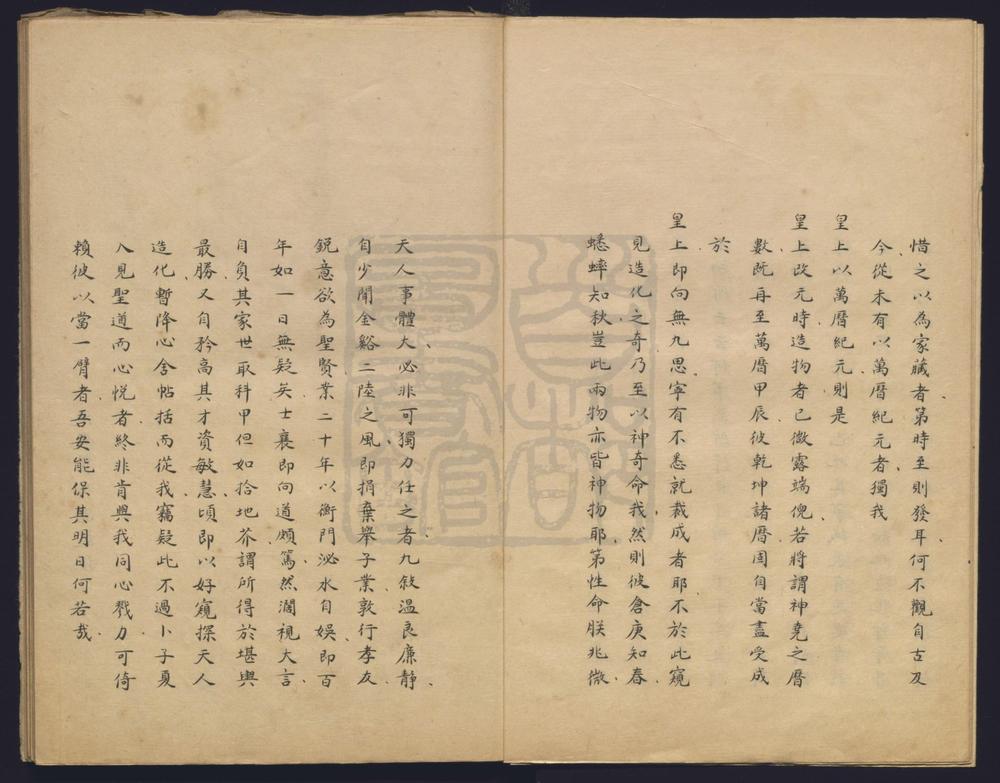 惜之以為家藏者第時至則發耳何不觀自古及
今從未有以萬曆紀元者獨我
皇上以萬曆紀元則是
皇上改元時造物者已微露端倪若將謂神堯之曆
數既再至萬曆甲辰彼乾坤諸曆固自當盡受成
於
皇上即向無九思寧有不悉就裁成者耶不於此窺
見造化之奇乃至以神奇命我然則彼倉庚知春
蟋蟀知秋豈此兩物亦皆神物耶第性命朕兆微
天人事體大必非可獨力任之者九敘溫良廉靜
自少聞金谿二陸之風即捐棄舉子業敦行孝友
銳意欲為聖賢業二十年以衡門泌水自娛即百
年如一日無疑矣士襄即向道頗篤然濶視大言
自負其家世取科甲但如拾地芥謂所得於堪輿
最勝又自矜高其才資敏慧頃即以好窺探天人
造化暫降心舍帖括而從我竊疑此不過卜子夏
入見聖道而心悅者終非肯與我同心戮力可倚
賴彼以當一臂者吾安能保其明日何若哉